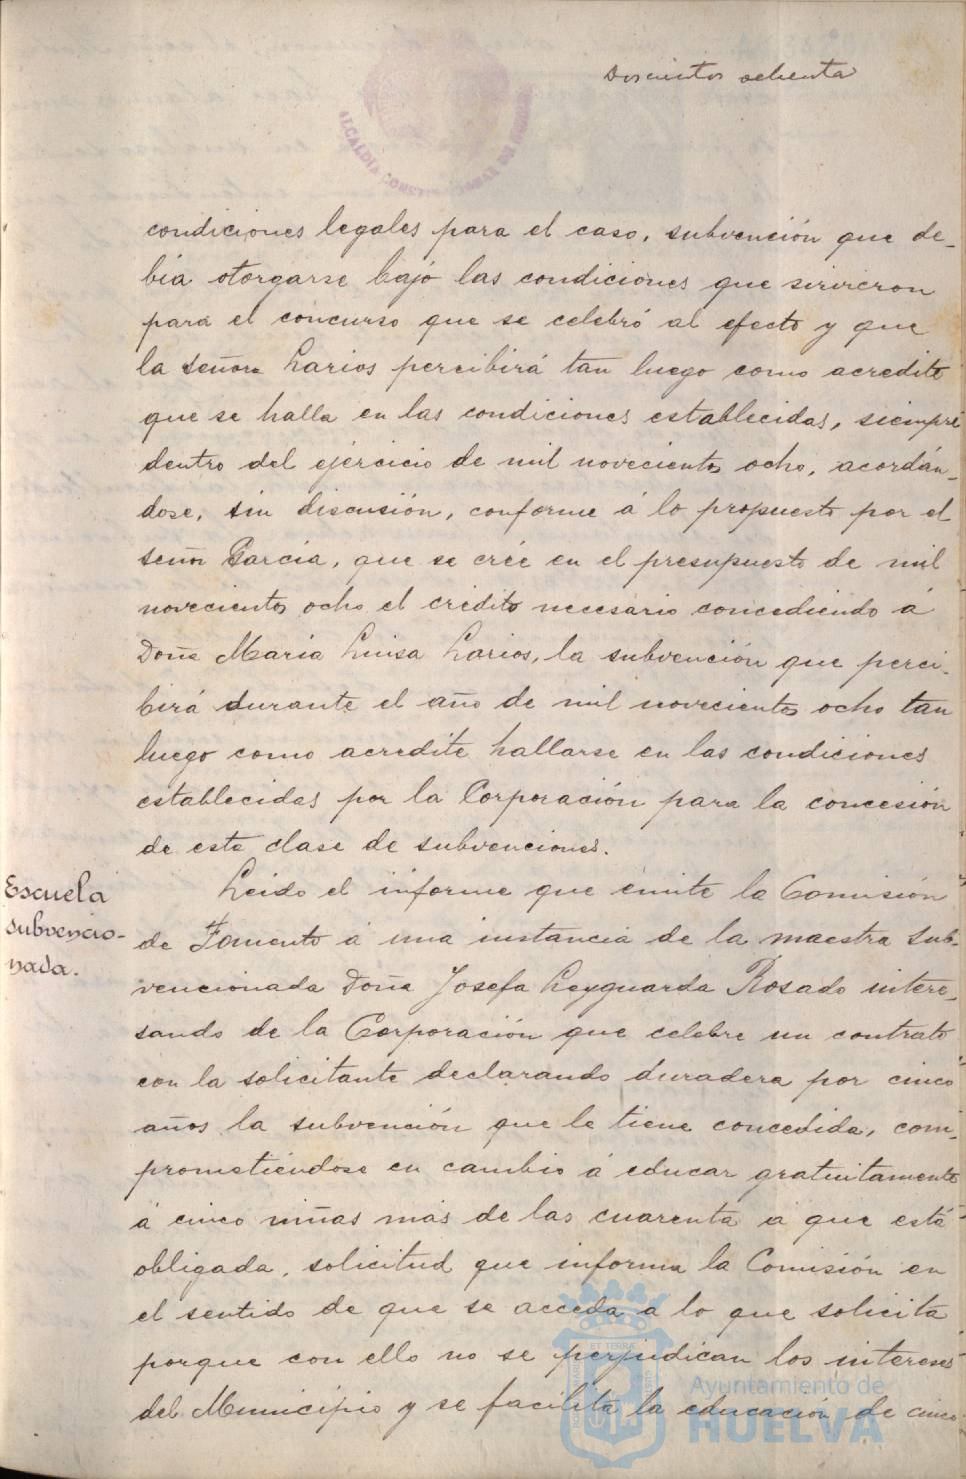 Doscientos ochenta
condiciones legales para el caso, subvención que de-
bía otorgarse bajo las condiciones que sirvieron
para el concurso que se celebró al efecto y que
la señora Larios percibirá tan luego como acredite
que se halla en las condiciones establecidas, siempre
dentro del ejercicio de mil novecientos ocho, acordán-
dose, sin discusión, conforme á lo propuesto por el
señor García, que se crée en el presupuesto de mil
novecientos ocho el crédito necesario concediendo á
Doña María Luisa Larios, la subvención que perci-
birá durante el año de mil novecientos ocho tan
luego como acredite hallarse en las condiciones
establecidas por la Corporación para la concesión
de esta clase de subvenciones.
Escuela
subvencio-
nada.
Leido el informe que emite la Comisión
de Fomento á una instancia de la maestra sub-
vencionada Doña Josefa Leyguarda Rosado intere-
sando de la Corporación que celebre un contrato
con la solicitante declarando duradera por cinco
años la subvención que le tiene concedida, com-
prometiéndose en cambio á educar gratuitamente
á cinco niñas más de las cuarenta á que está
obligada, solicitud que informa la Comisión en
el sentido de que se acceda á lo que solicita
porque con ello no se perjudican los intereses
del Municipio y se facilita la educación de cinco
ALCALDIA CONSTITUCIONAL DE
Ayuntamiento de
HUELVA